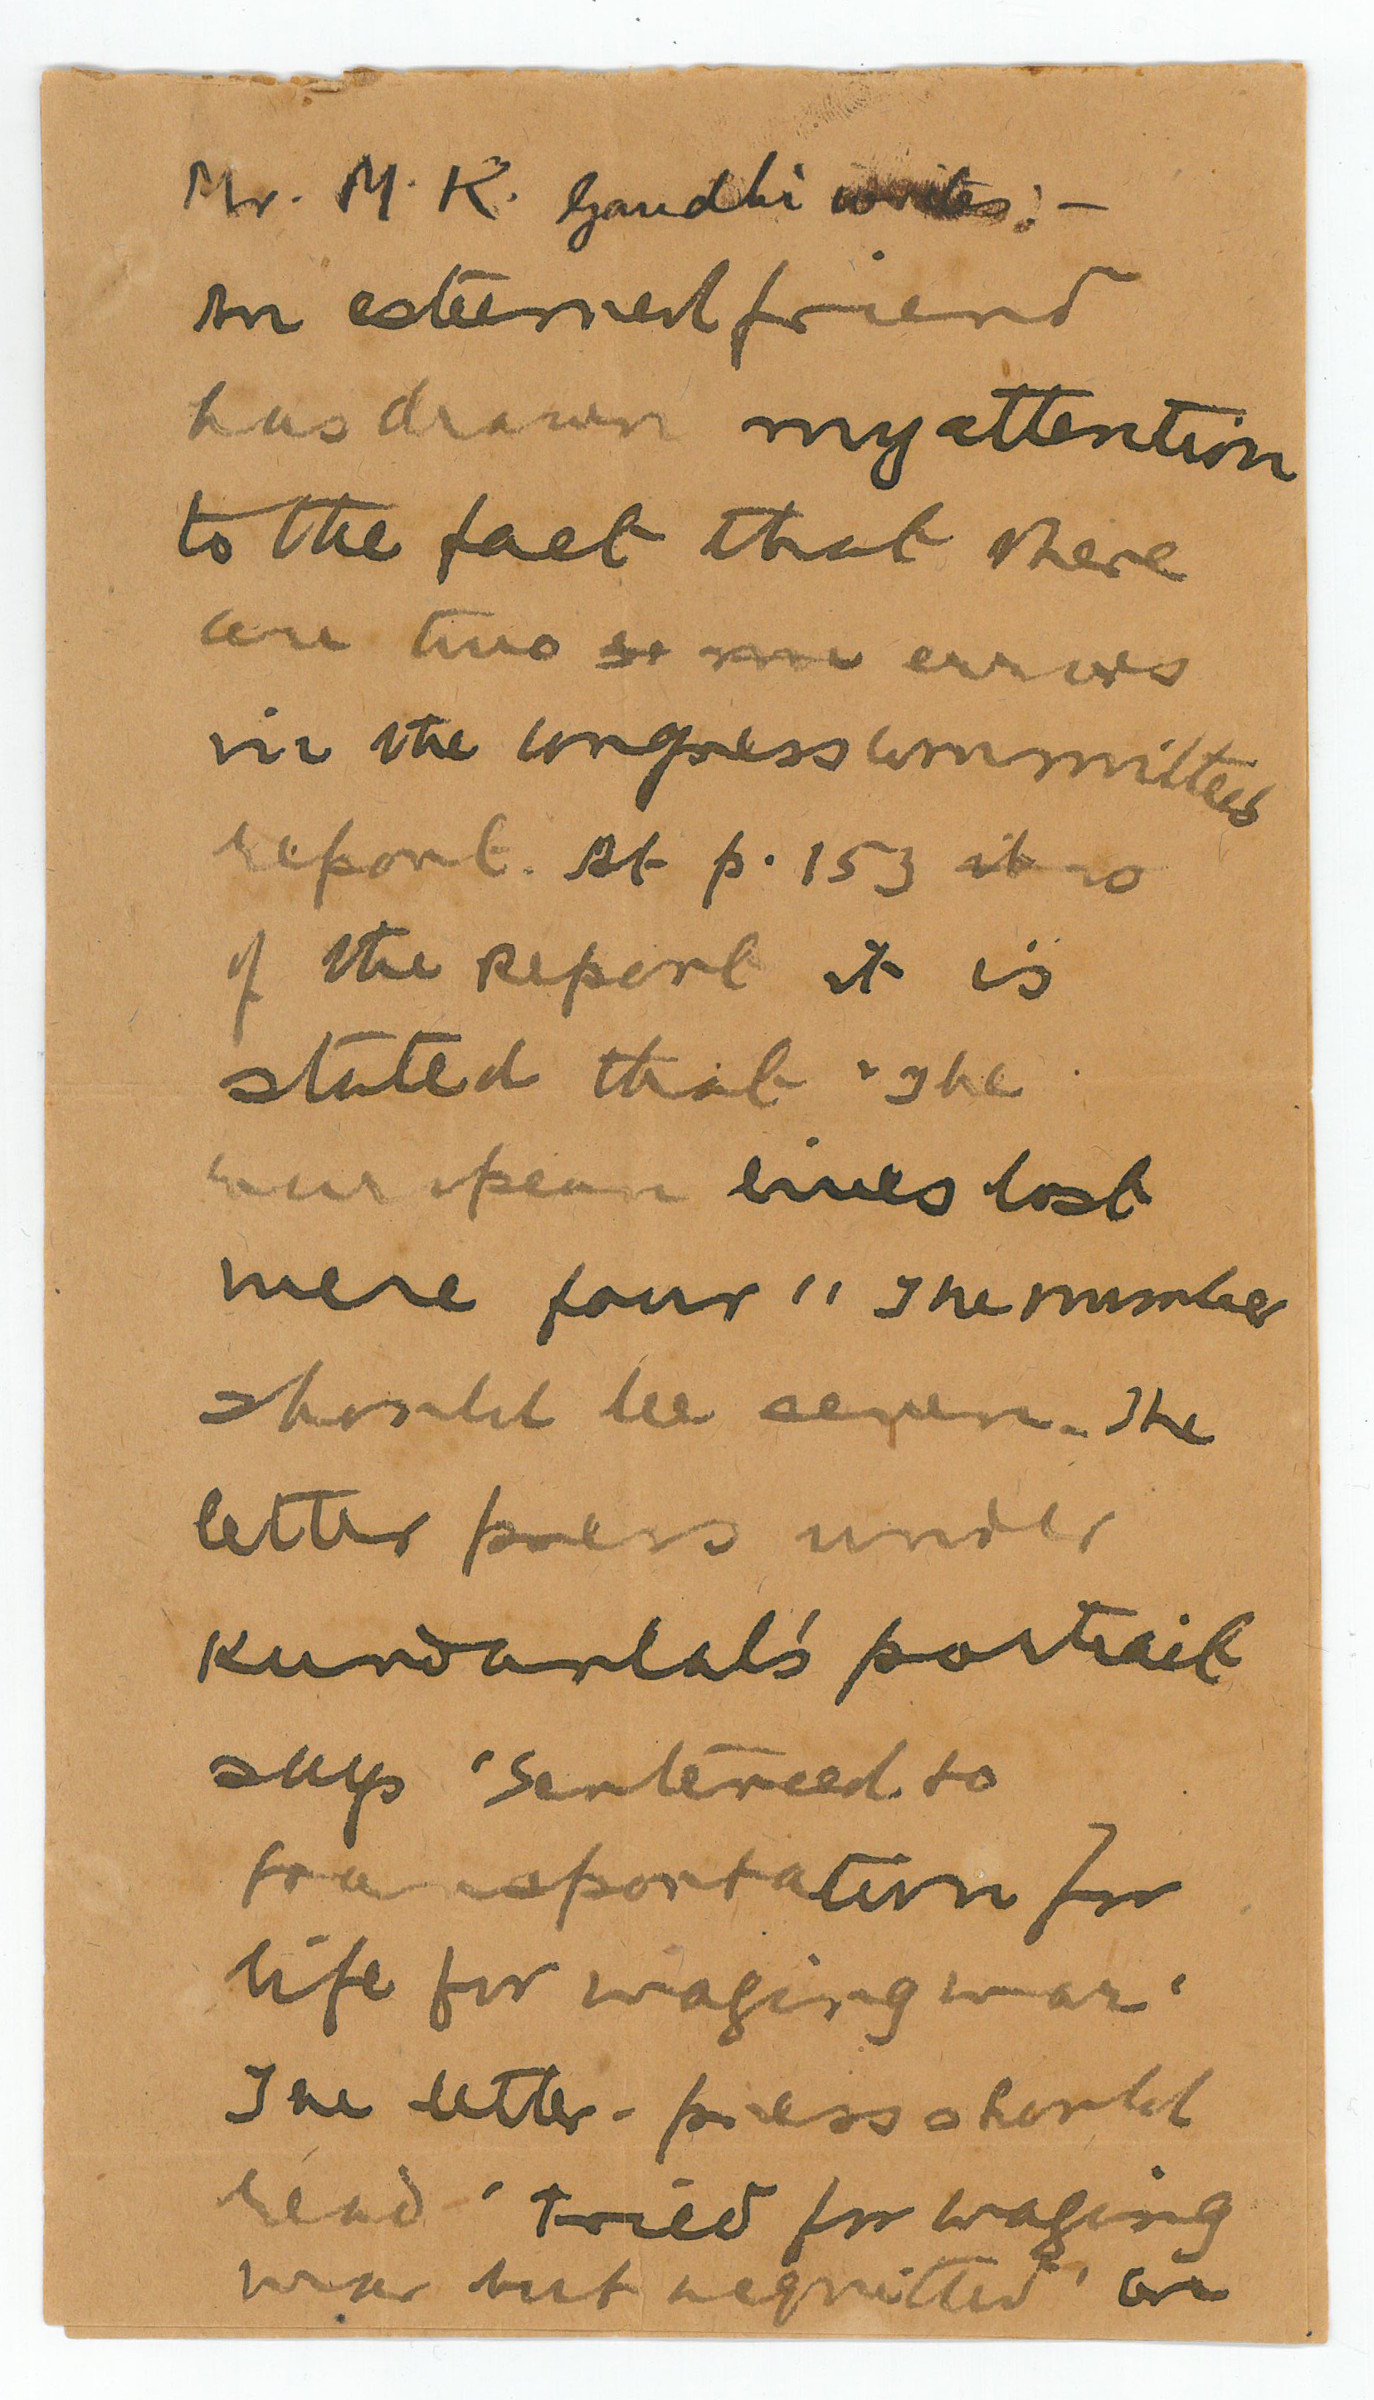 Mr. M. K. Gandhi writes:-
An esteemed friend
has drawn my attention
to the fact that there
are two errors
in the Congress Committee's
report. At p. 153 it is
of the Report it is
stated that "The
European lives lost
were four" The number
should be seven. The
letter press under
Kundanlal's portrait
says 'Sentenced to
transportation for
life for waging war'
The letter-press should
read 'Tried for waging
war but acquitted' on